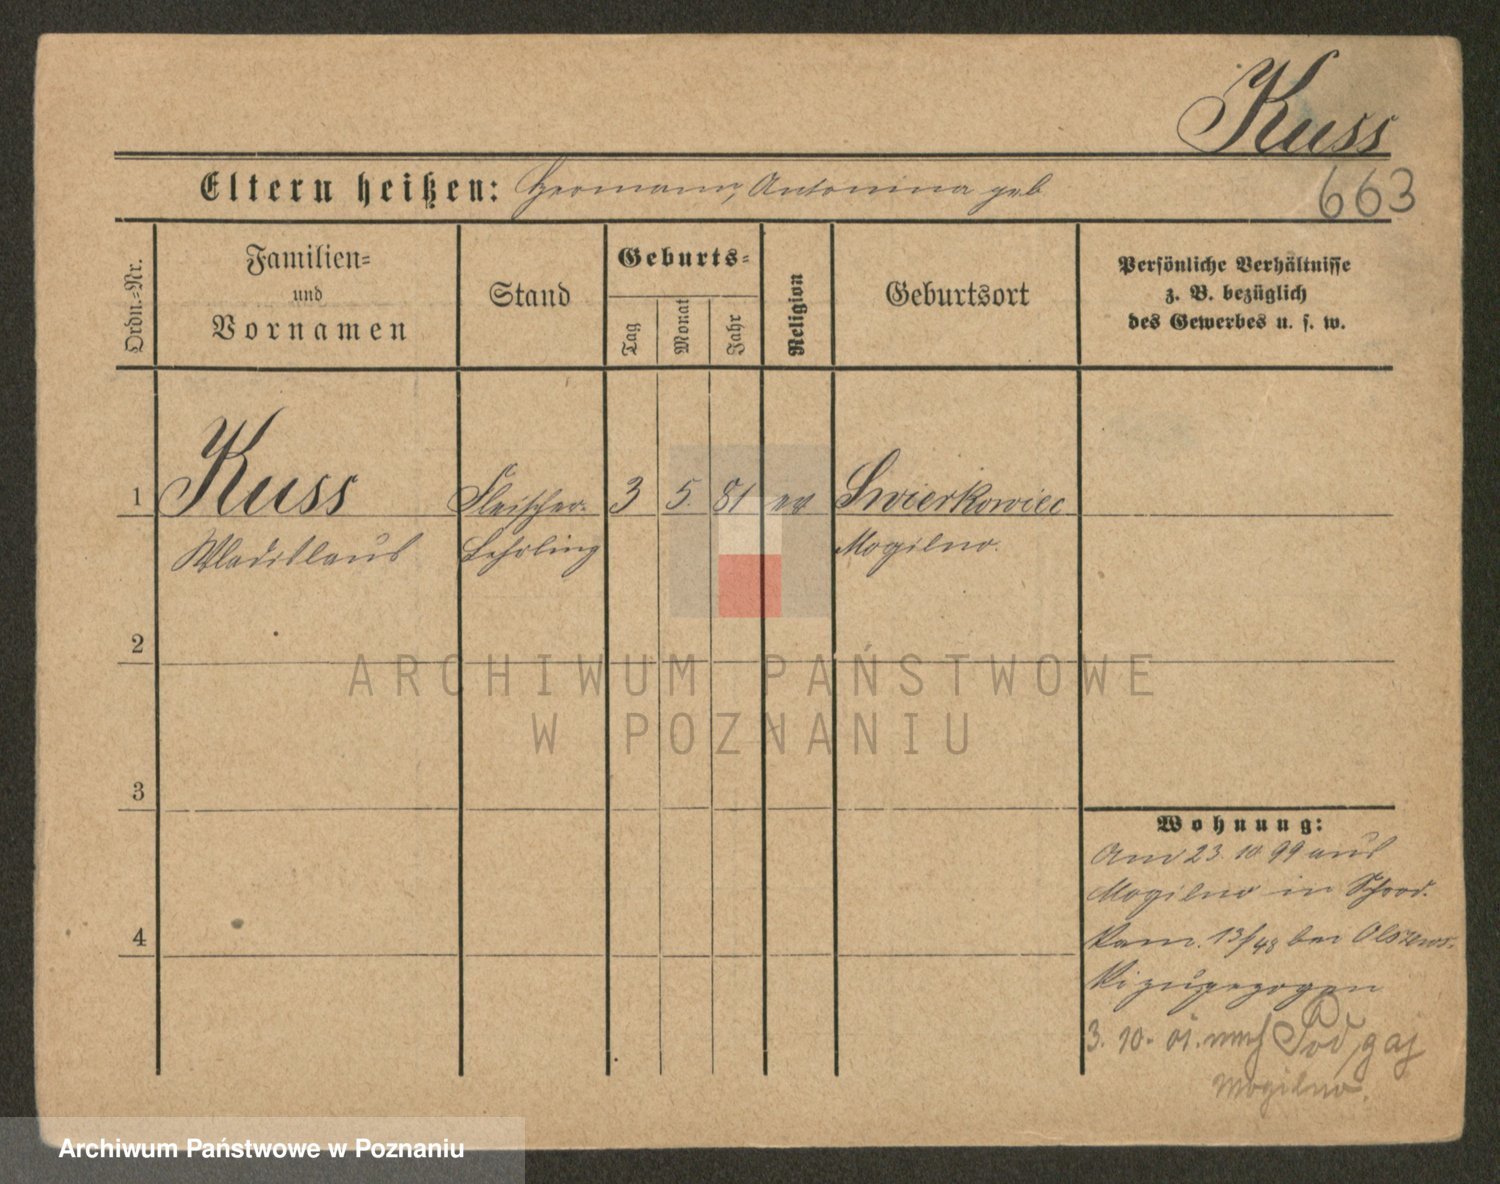 Kuss
Eltern heißen: Hermann, Antonina geb
663
Ordn.=Nr.
Familien=
und
Vornamen
Stand
Geburts=
Tag
Monat
Jahr
Religion
Geburtsort
Persönliche Verhältnisse
z. B. bezüglich
des Gewerbes u. s. w.
1 Kuss Fleischer- 3 5. 81 ev Swierkowiec
Wladislaus Lehrling Mogilno.
2
ARCHIWUM PAŃSTWOWE
W POZNANIU
3
Wohnung:
Am 23. 10 99 aus
Mogilno in Schrod.
kam. 13/48 bei Olszews-
ki zugezogen
4
3. 10. 01. nach Pod gaj
Mogilno.
Archiwum Państwowe w Poznaniu